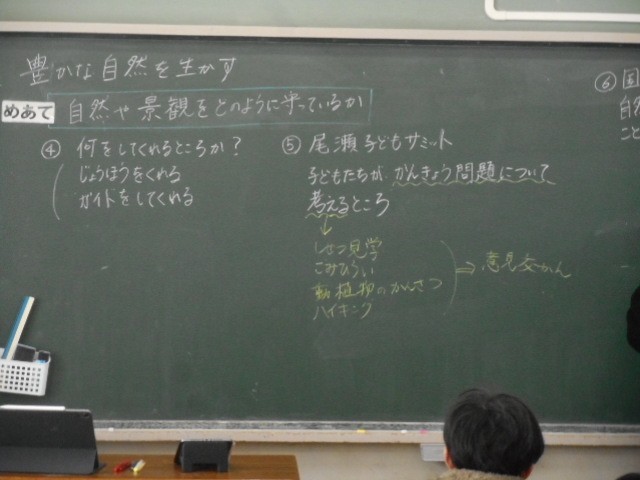 豊かな自然を生かす
めあて 自然や景観をどのように守っているか
④ 何をしてくれるところか?
じょうほうをくれる
ガイドをしてくれる
⑤ 尾瀬子どもサミット
子どもたちが、かんきょう問題について
考えるところ
↓
しつ見学
ごみひろい
動植物のかんさつ
ハイキング
⇒ 意見交かん
⑥ 国
自然
こと